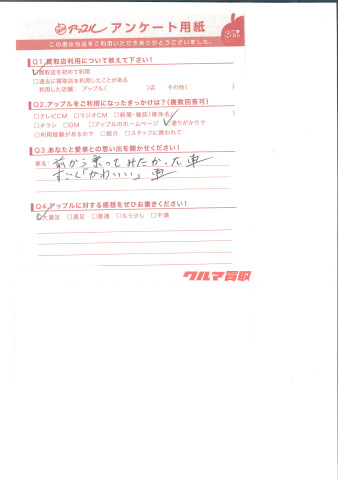 アップル アンケート用紙
この度は当店をご利用いただきありがとうございました。
Q1.買取店利用について教えて下さい!
買取店を初めて利用
□過去に買取店を利用したことがある
利用した店舗: アップル( )店 その他( )
Q2.アップルをご利用になったきっかけは?(複数回答可)
□テレビCM □ラジオCM □新聞・雑誌(媒体名 )
□チラシ □DM □アップルのホームページ 通りがかりで
□利用経験があるので □紹介 □スタッフに誘われて
Q3.あなたと愛車との思い出を聞かせください!
車名: 前から乗ってみたかった車
すごく「かわいい」車
Q4.アップルに対する感想をぜひお書きください!
大満足 □満足 □普通 □もう少し □不満
クルマ買取